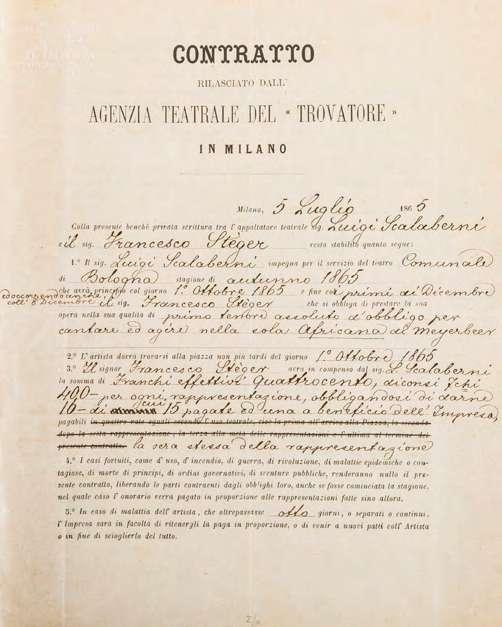 CONTRATTO
RILASCIATO DALL'
AGENZIA TEATRALE DEL « TROVATORE »
IN MILANO
Milano, 5 Luglio 1865
Colla presente benchè privata scrittura tra l'appaltatore teatrale sig. Luigi Scalaberni
e il sig. Francesco Stèger resta stabilito quanto segue:
1.° Il sig. Luigi Scalaberni impegna per il servizio del teatro Comunale
di Bologna stagione di autunno 1865
che avrà principio col giorno 1.° Ottobre 1865 e fine coi primi di Dicembre
ed occorrendo anche coll' 8 Dicembre il sig. Francesco Stèger che si obbliga di prestare la sua
opera nella sua qualità di primo tenore assoluto d'obbligo per
cantare ed agire nella sola Africana di Meyerbeer
2.° L'artista dovrà trovarsi alla piazza non più tardi del giorno 1.° Ottobre 1865
3.° Il signor Francesco Stèger avrà in compenso dal sig. L. Scalaberni
la somma di Franchi effettivi Quattrocento, diconsi fchi
400- per ogni rappresentazione, obbligandosi di darne
10- di 15 pagate ed una a beneficio dell' Impresa,
pagabili in quattro rate eguali
la sera stessa della rappresentazione
4.° I casi fortuiti, come d'uso, d'incendio, di guerra, di rivoluzione, di malattie epidemiche o con-
tagiose, di morte di principi, di ordini governativi, di sventure pubbliche, renderanno nullo il pre-
sente contratto, liberando le parti contraenti dagli obblighi loro, anche se fosse cominciata la stagione,
nel quale caso l'onorario verrà pagato in proporzione alle rappresentazioni fatte sino allora.
5.° In caso di malattia dell'artista, che oltrepassasse otto giorni, o separati o continui,
l'Impresa sarà in facoltà di ritenergli la paga in proporzione, o di venir a nuovi patti coll' Artista
o in fine di scioglierlo del tutto.